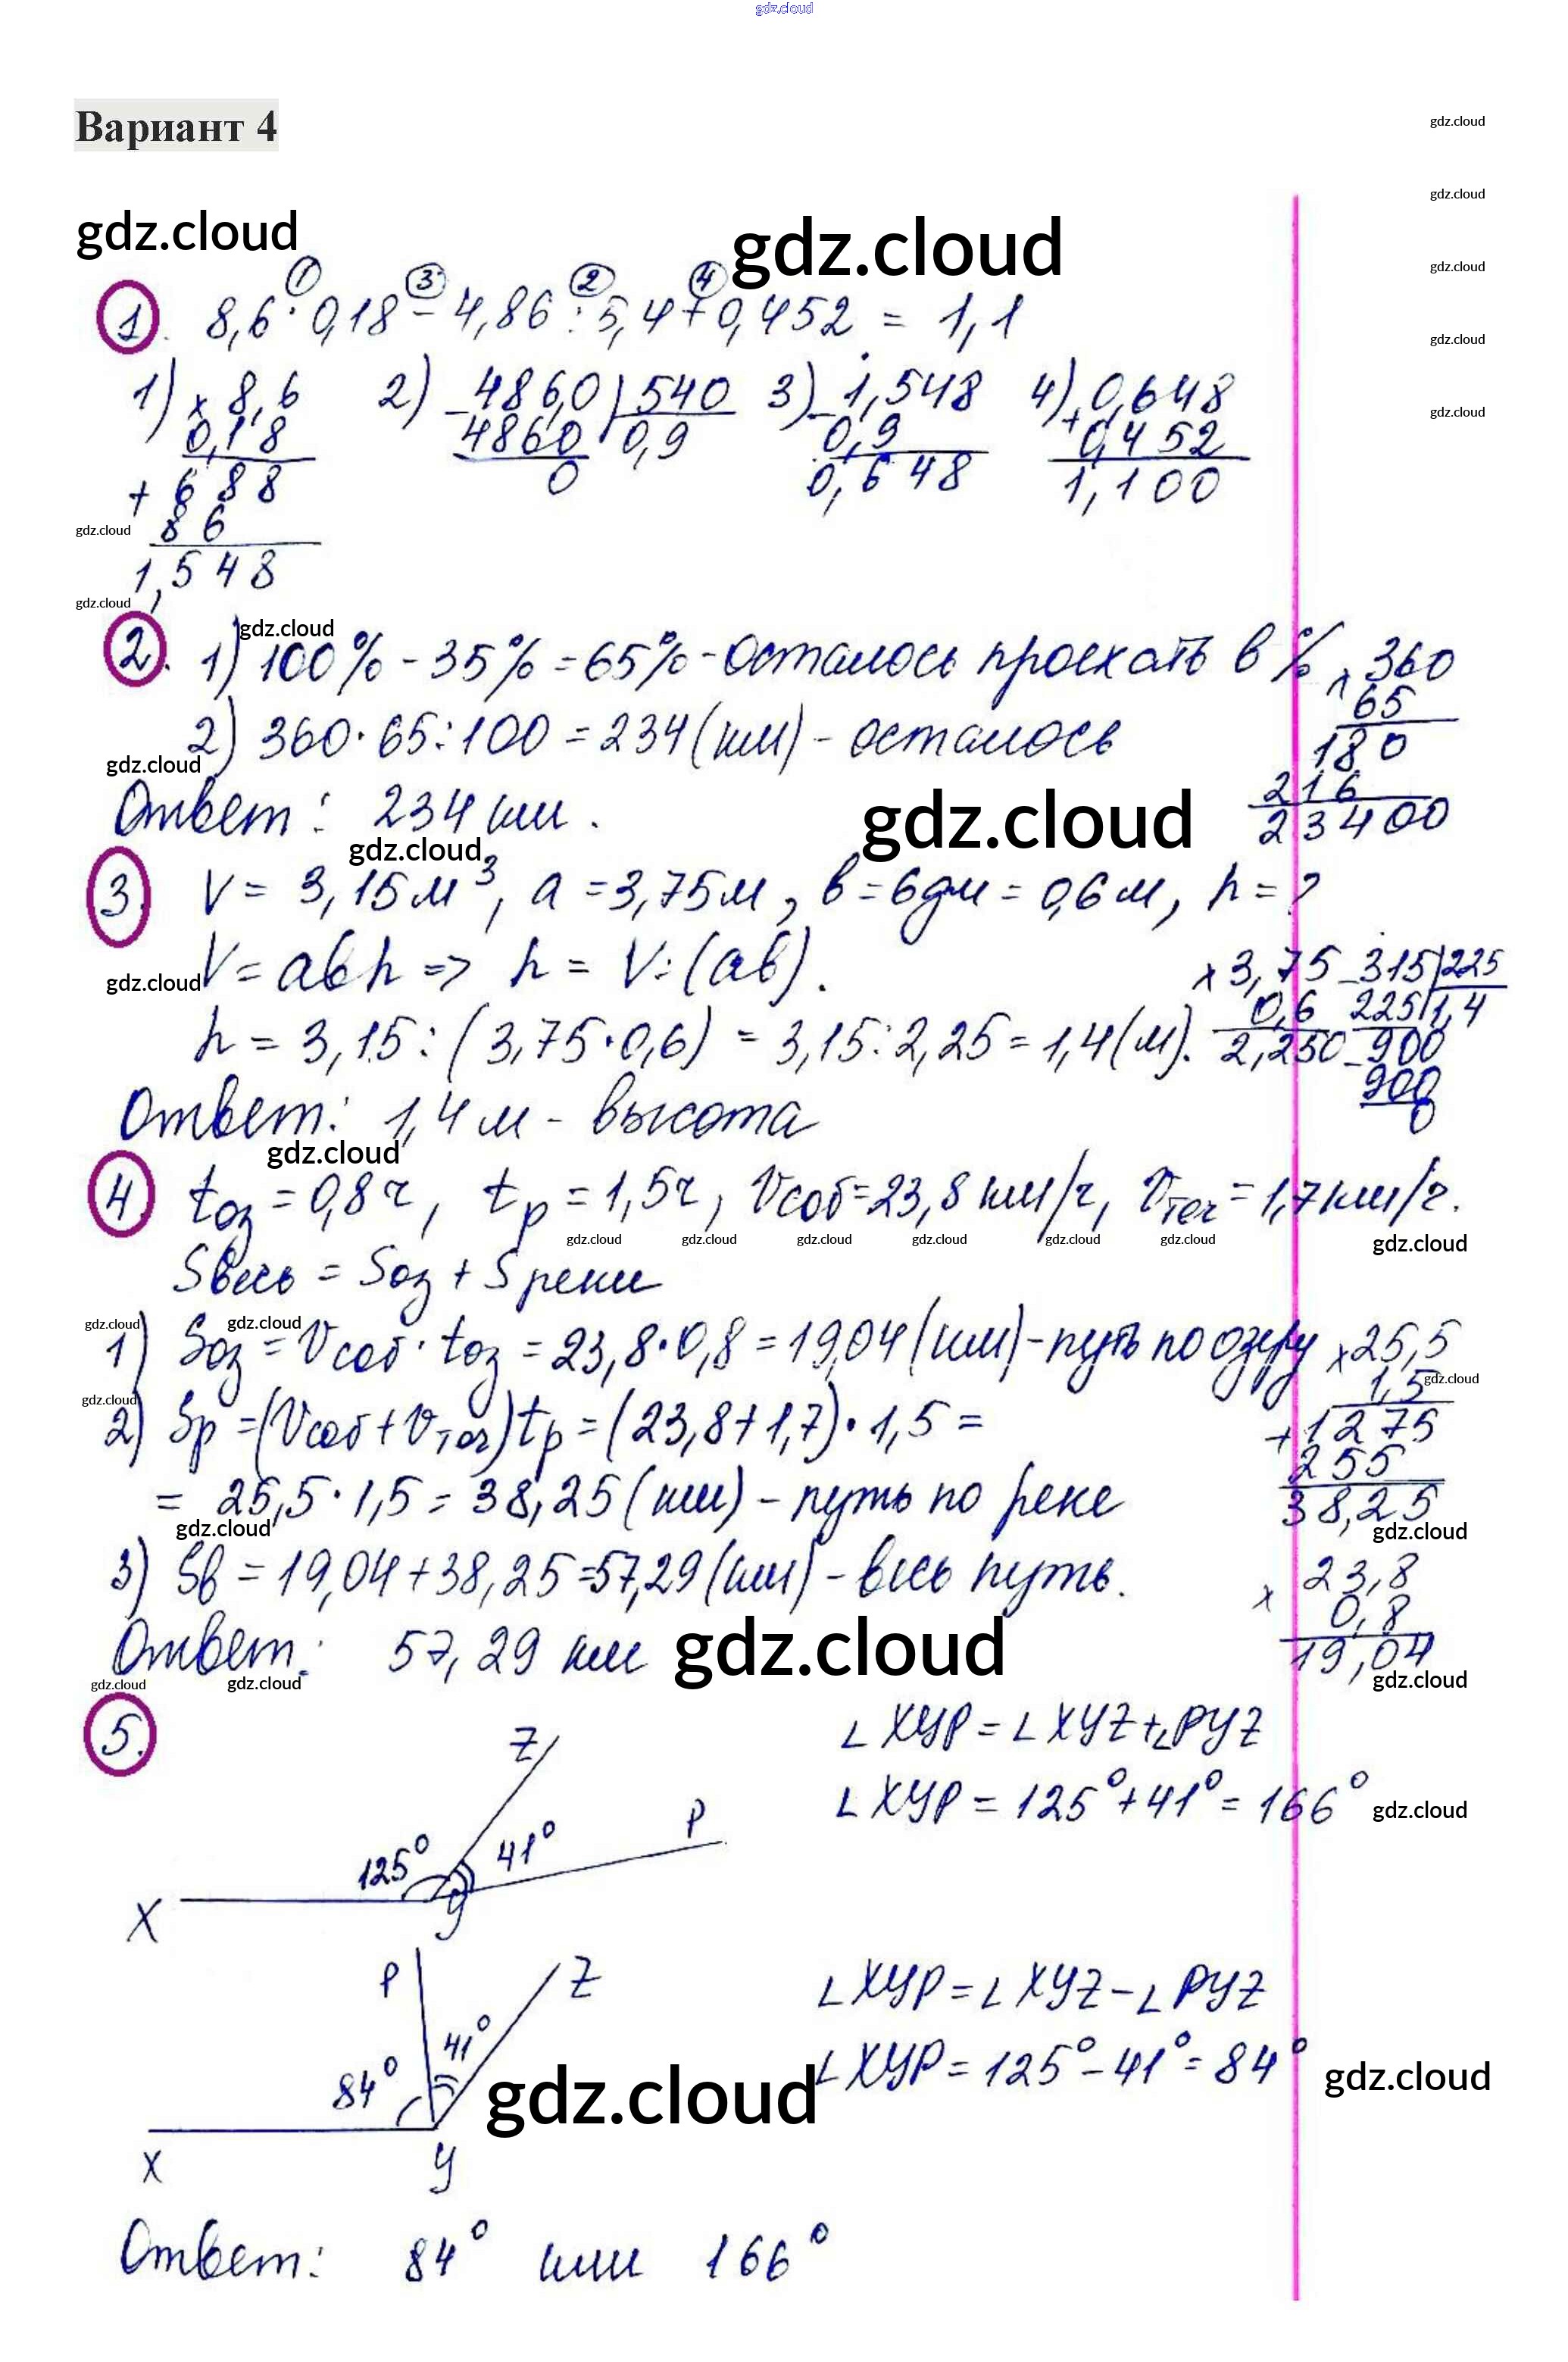 gdz.cloud
Вариант 4
gdz.cloud
gdz.cloud
gdz.cloud gdz.cloud
gdz.cloud
① ③ ② ④
1. 8,6 · 0,18 - 4,86 : 5,4 + 0,452 = 1,1
gdz.cloud
gdz.cloud
1) × 8,6 2) - 486,0 | 540 3) - 1,548 4) + 0,648
0,18 4860 0,9 0,9 0,452
+ 688 0 0,648 1,100
86
gdz.cloud
1,548
gdz.cloud
gdz.cloud
2. 1) 100% - 35% = 65% - осталось проехать в % × 360
65
2) 360 · 65 : 100 = 234 (км) - осталось 180
gdz.cloud
216
Ответ: 234 км. gdz.cloud 23400
gdz.cloud
3. V = 3,15 м³, a = 3,75 м, в = 6 дм = 0,6 м, h = ?
gdz.cloud V = aвh => h = V : (aв). × 3,75 - 315 | 225
0,6 225 1,4
h = 3,15 : (3,75 · 0,6) = 3,15 : 2,25 = 1,4 (м). 2,250 - 900
900
Ответ: 1,4 м - высота 0
gdz.cloud
4. tоз = 0,8 ч, tр = 1,5 ч, Vсоб = 23,8 км/ч, Vтеч = 1,7 км/ч.
gdz.cloud gdz.cloud gdz.cloud gdz.cloud gdz.cloud gdz.cloud gdz.cloud
Sвесь = Sоз + Sреки
gdz.cloud gdz.cloud
1) Sоз = Vсоб · tоз = 23,8 · 0,8 = 19,04 (км) - путь по озеру × 25,5
gdz.cloud 1,5 gdz.cloud
2) Sр = (Vсоб + Vтеч) tр = (23,8 + 1,7) · 1,5 = + 1275
255
= 25,5 · 1,5 = 38,25 (км) - путь по реке 38,25
gdz.cloud gdz.cloud
3) Sв = 19,04 + 38,25 = 57,29 (км) - весь путь. × 23,8
0,8
Ответ: 57,29 км gdz.cloud 19,04
gdz.cloud gdz.cloud gdz.cloud
5. Z ∠XYP = ∠XYZ + ∠PYZ
∠XYP = 125° + 41° = 166° gdz.cloud
P
125° 41°
X Y
P Z ∠XYP = ∠XYZ - ∠PYZ
41°
84° gdz.cloud ∠XYP = 125° - 41° = 84° gdz.cloud
X Y
Ответ: 84° или 166°